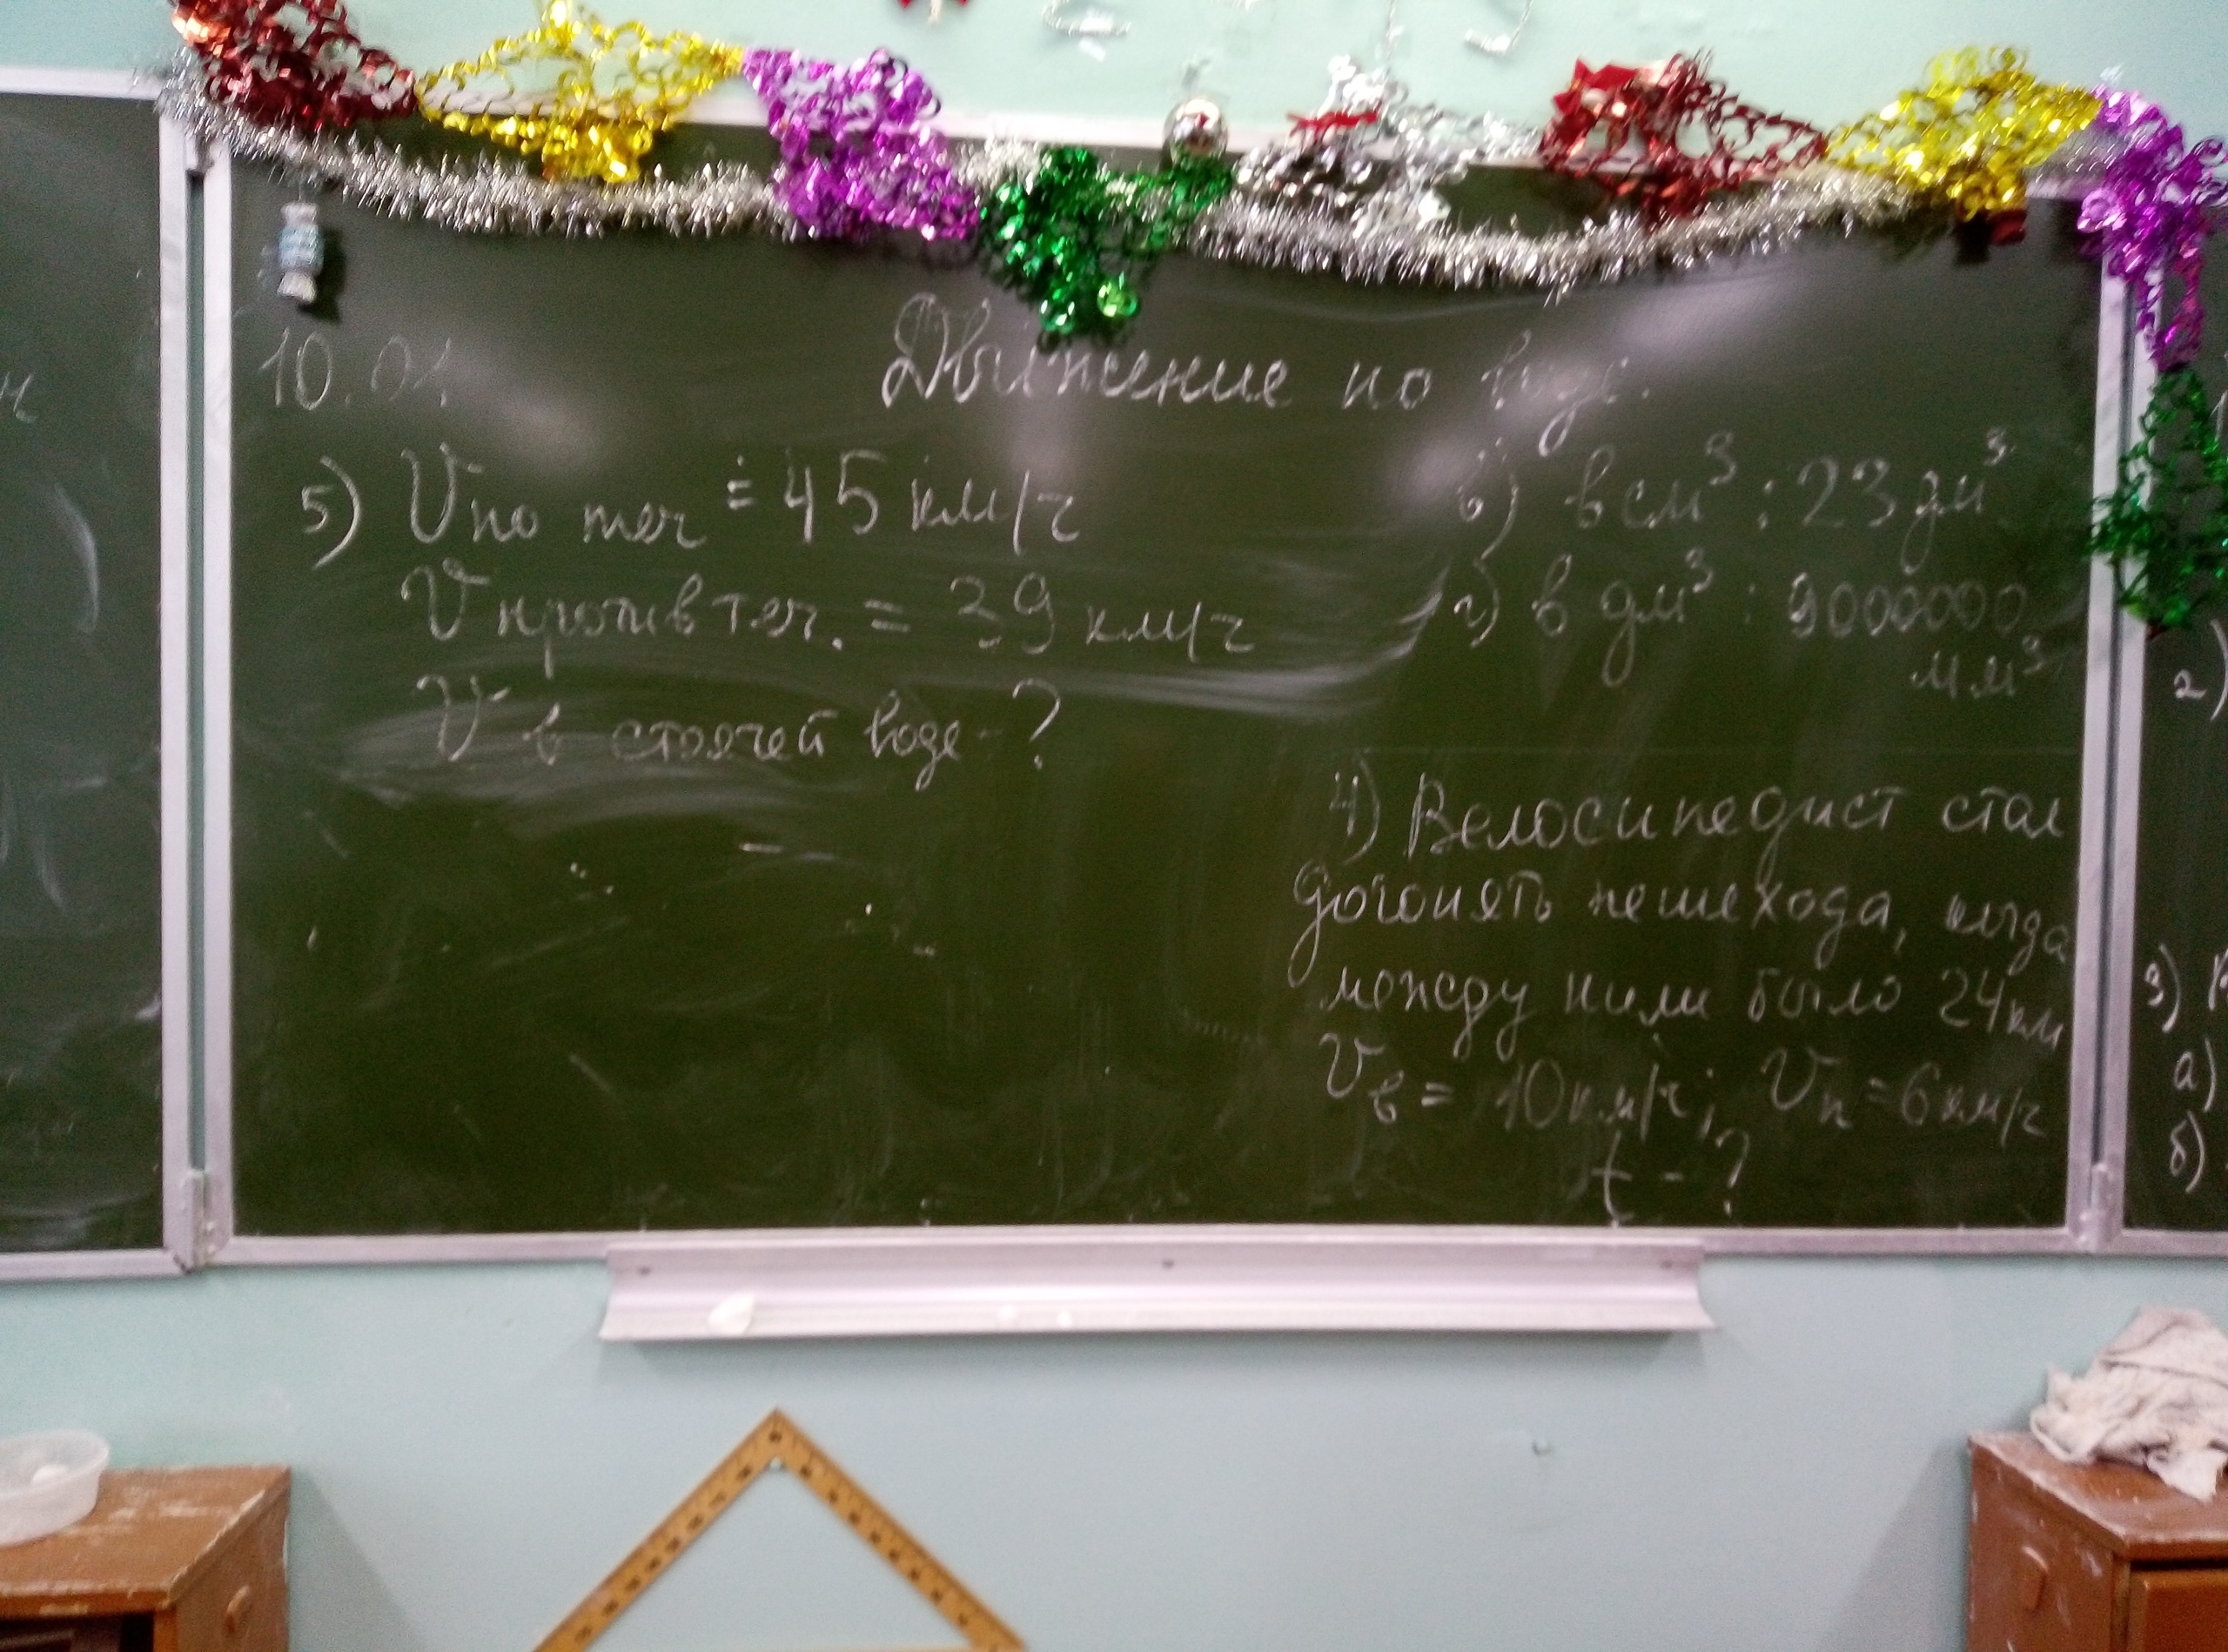 10.01.
Движение по воде.
5) V по теч = 45 км/ч
V против теч. = 39 км/ч
V в стоячей воде - ?
в) в см³ : 23 дм³
г) в дм³ : 9000000
мм³
4) Велосипедист стал
догонять пешехода, когда
между ними было 24 км
Vв = 10 км/ч; Vп = 6 км/ч
t - ?
2)
3)
а)
б)